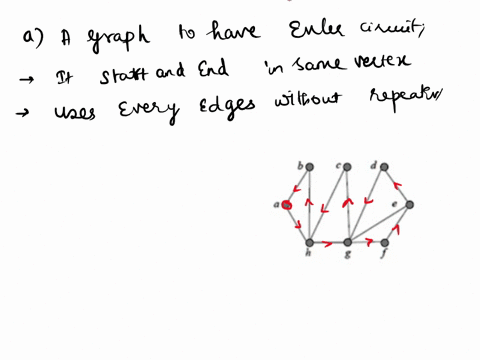 a) A graph to have Euler circuit,
→ It start and End in same vertex
→ uses Every Edges without repeat
b c d
a e
h g f